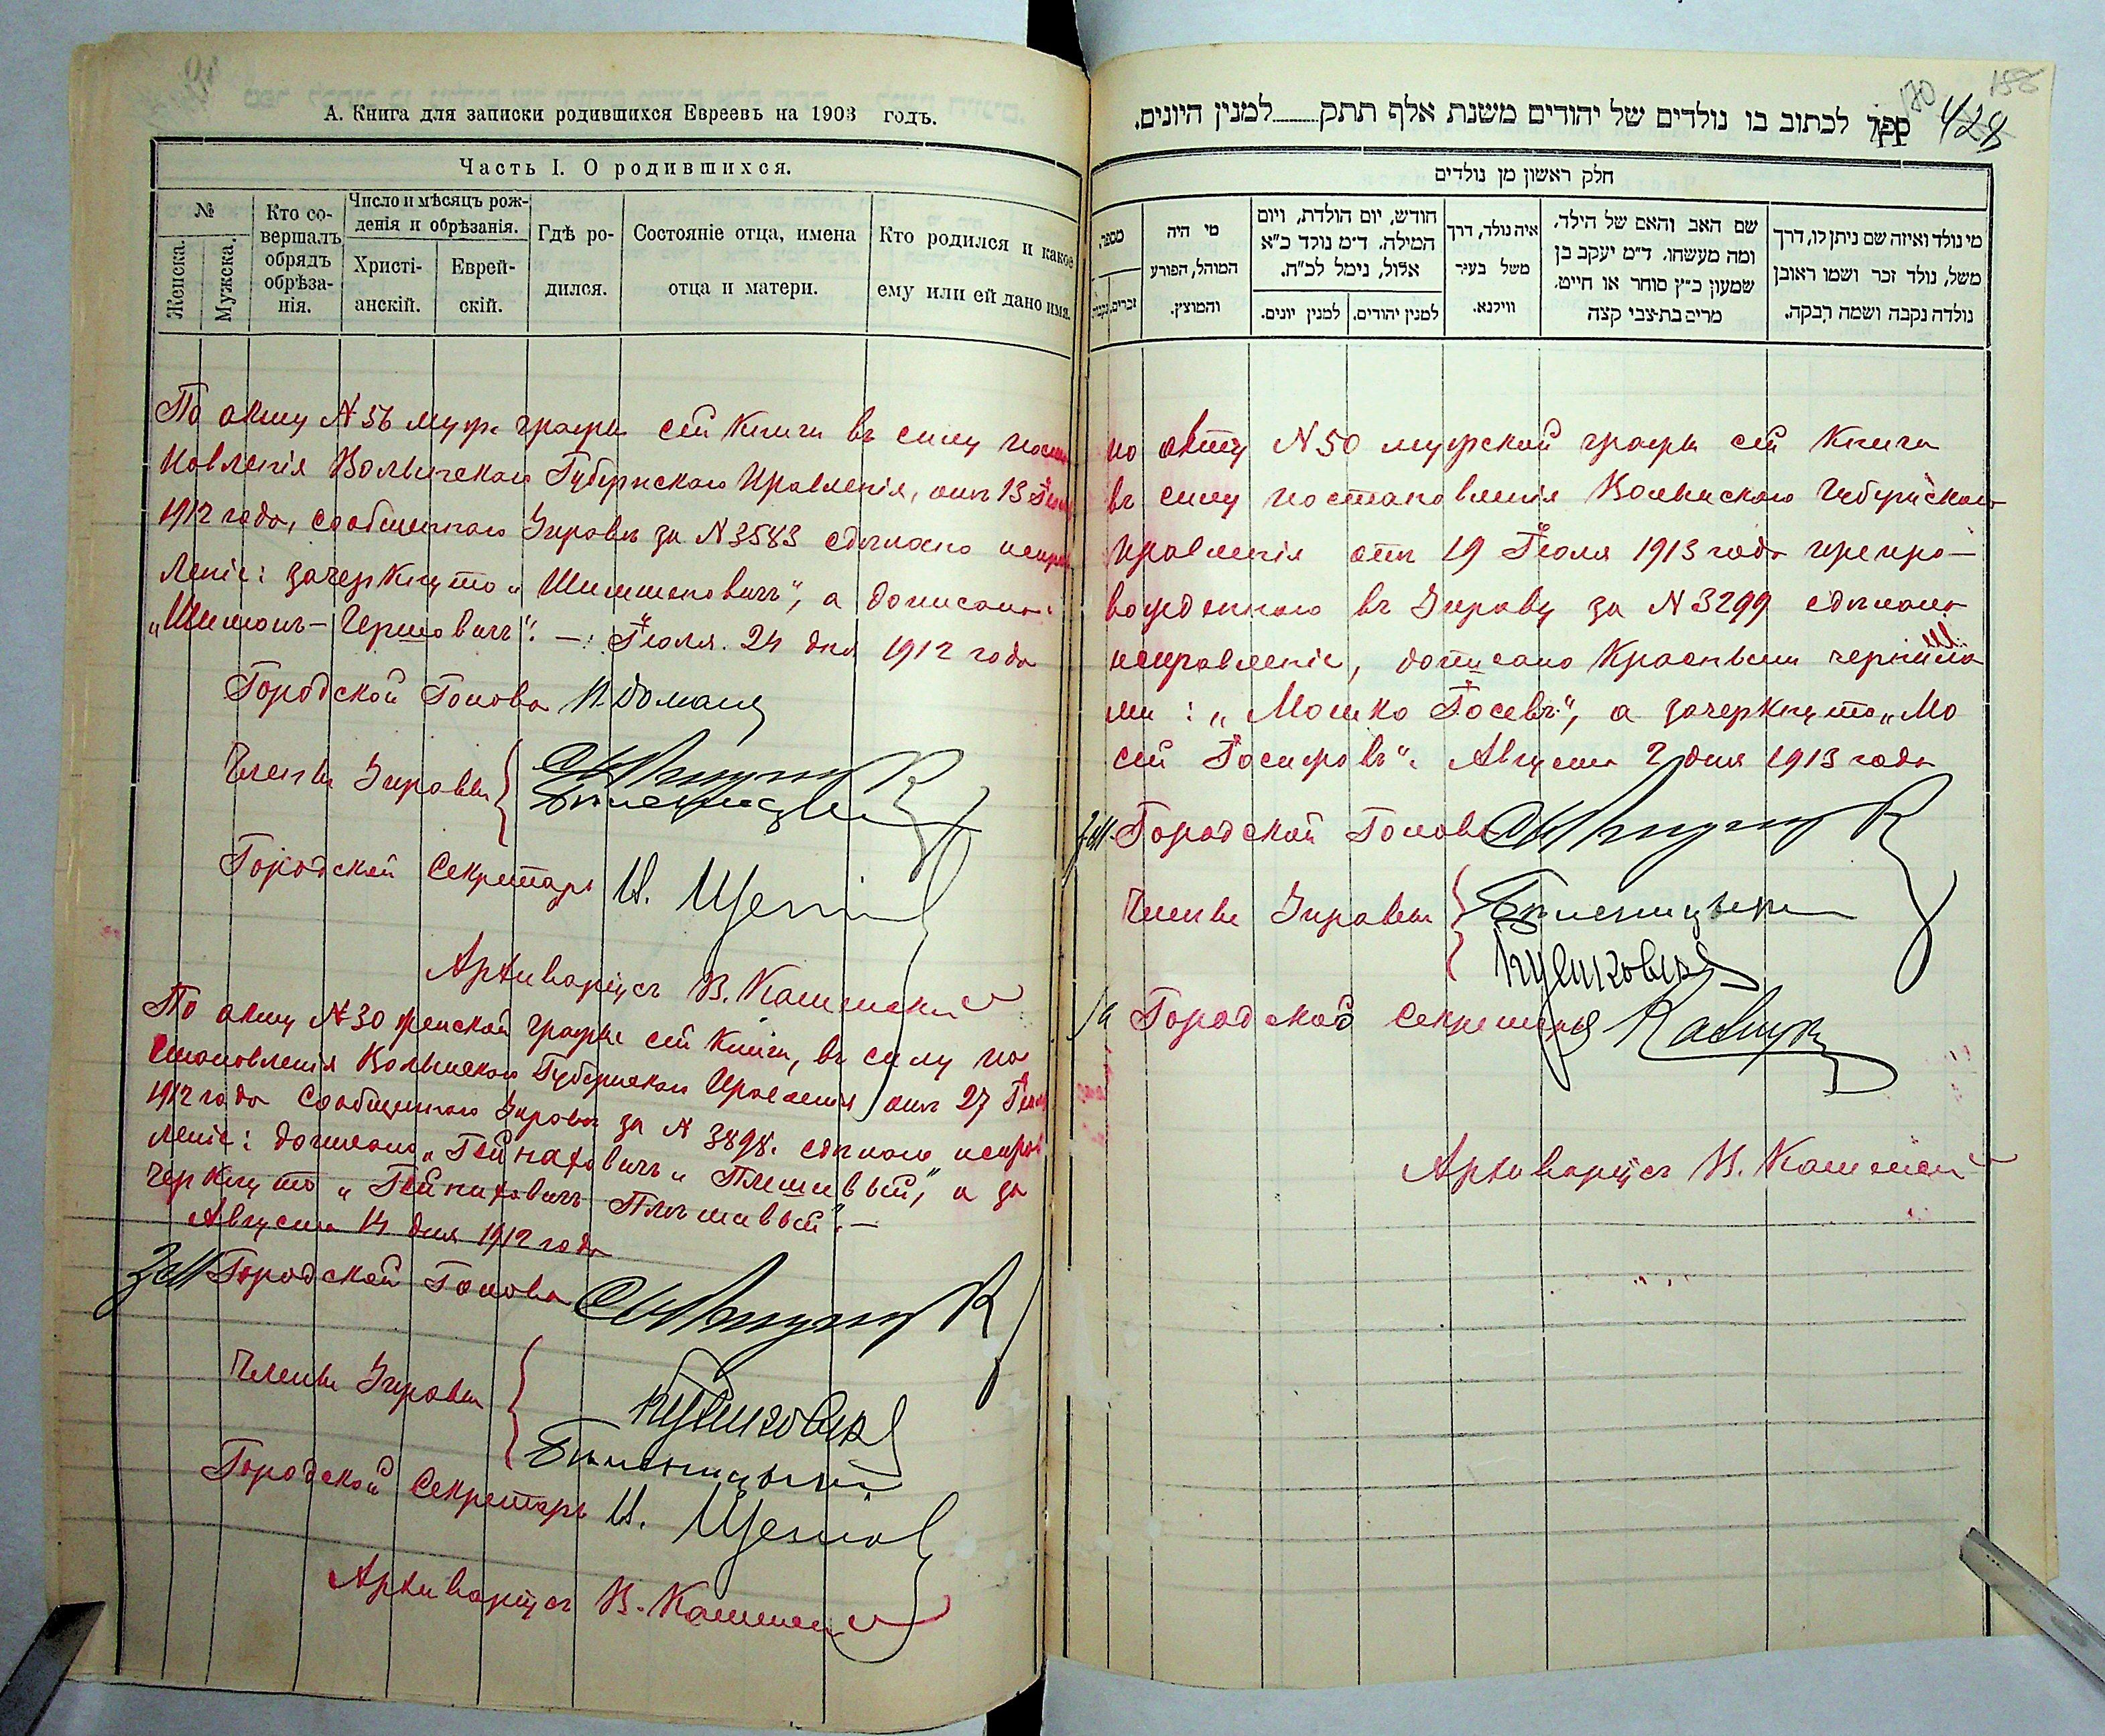 А. Книга для записки родившихся Евреевъ на 1903 годъ.
Часть I. О родившихся.
№
Женска.
Мужска.
Кто со-
вершалъ
обрядъ
обрѣза-
нія.
Число и мѣсяцъ рож-
денія и обрѣзанія.
Христі-
анскій.
Еврей-
скій.
Гдѣ ро-
дился.
Состояніе отца, имена
отца и матери.
Кто родился и какое
ему или ей дано имя.
По акту № 56 муж. графы сей Книги въ силу поста
новленія Волынскаго Губернскаго Правленія, отъ 13
1912 года, сообщеннаго Управѣ за № 3583 сдѣлано испра
леніе: зачеркнуто „Шимшеновичъ“, а дописано:
„Шимонъ-Гершовичъ“. — Іюля 24 дня 1912 года
Городской Голова
Члены Управы
Городской Секретарь И.
Архиваріусъ В.
По акту № 30 женской графы сей Книги, въ силу по
становленія Волынскаго Губернскаго Правленія отъ 27
1912 года сообщеннаго Управѣ за № 3898. сдѣлано испрв
леніе: дописано „Гейнаховичъ „Плешивый“, а за
черкнуто „Гейниховичъ Плѣшивый“. —
Августа 14 дня 1912 года
Зам Городской Голова
Члены Управы
Городской Секретарь И.
Архиваріусъ В.
428
ספר לכתוב בו נולדים של יהודים משנת אלף תתק למנין היונים.
חלק ראשון מן נולדים
מספר
זכרים
נקבות
מי היה
המוהל, הפורע
והמוצץ.
חודש, יום הולדת, ויום
המילה. ד״מ נולד כ״א
אלול, נימל לכ״ח.
למנין יונים.
למנין יהודים.
איה נולד, דרך
משל בעיר
ווילנא.
שם האב והאם של הילד,
ומה מעשהו. ד״מ יעקב בן
שמעון כ״ץ סוחר או חייט,
מרים בת־צבי קצה
מי נולד ואיזה שם ניתן לו, דרך
משל, נולד זכר ושמו ראובן
נולדה נקבה ושמה רבקה.
по акту № 50 мужской графы сей Книги
въ силу постановленія Волынскаго Губернскаго
Правленія отъ 19 Іюля 1913 года препро-
вожденнаго въ Управу за № 3299 сдѣлано
исправленіе, дописано красными чернила
ми: „Мошко Іосевъ“, а зачеркнуто „Мо
сей Іосифовъ“. Августа 2 дня 1913 года
Зам. Городской Голова
Члены Управы
За Городской Секретарь
Архиваріусъ В.